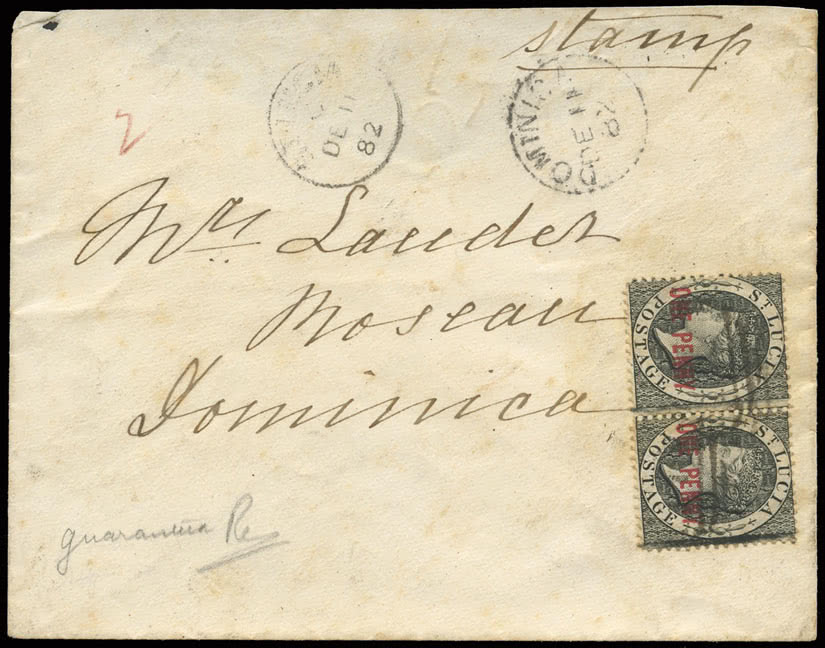 stamp
ST LUCIA
DE 11
82
DOMINICA
DE 11
82
2
Mrs Laudet
Roseau
Dominica
ST LUCIA
POSTAGE
ONE PENNY
ST LUCIA
POSTAGE
ONE PENNY